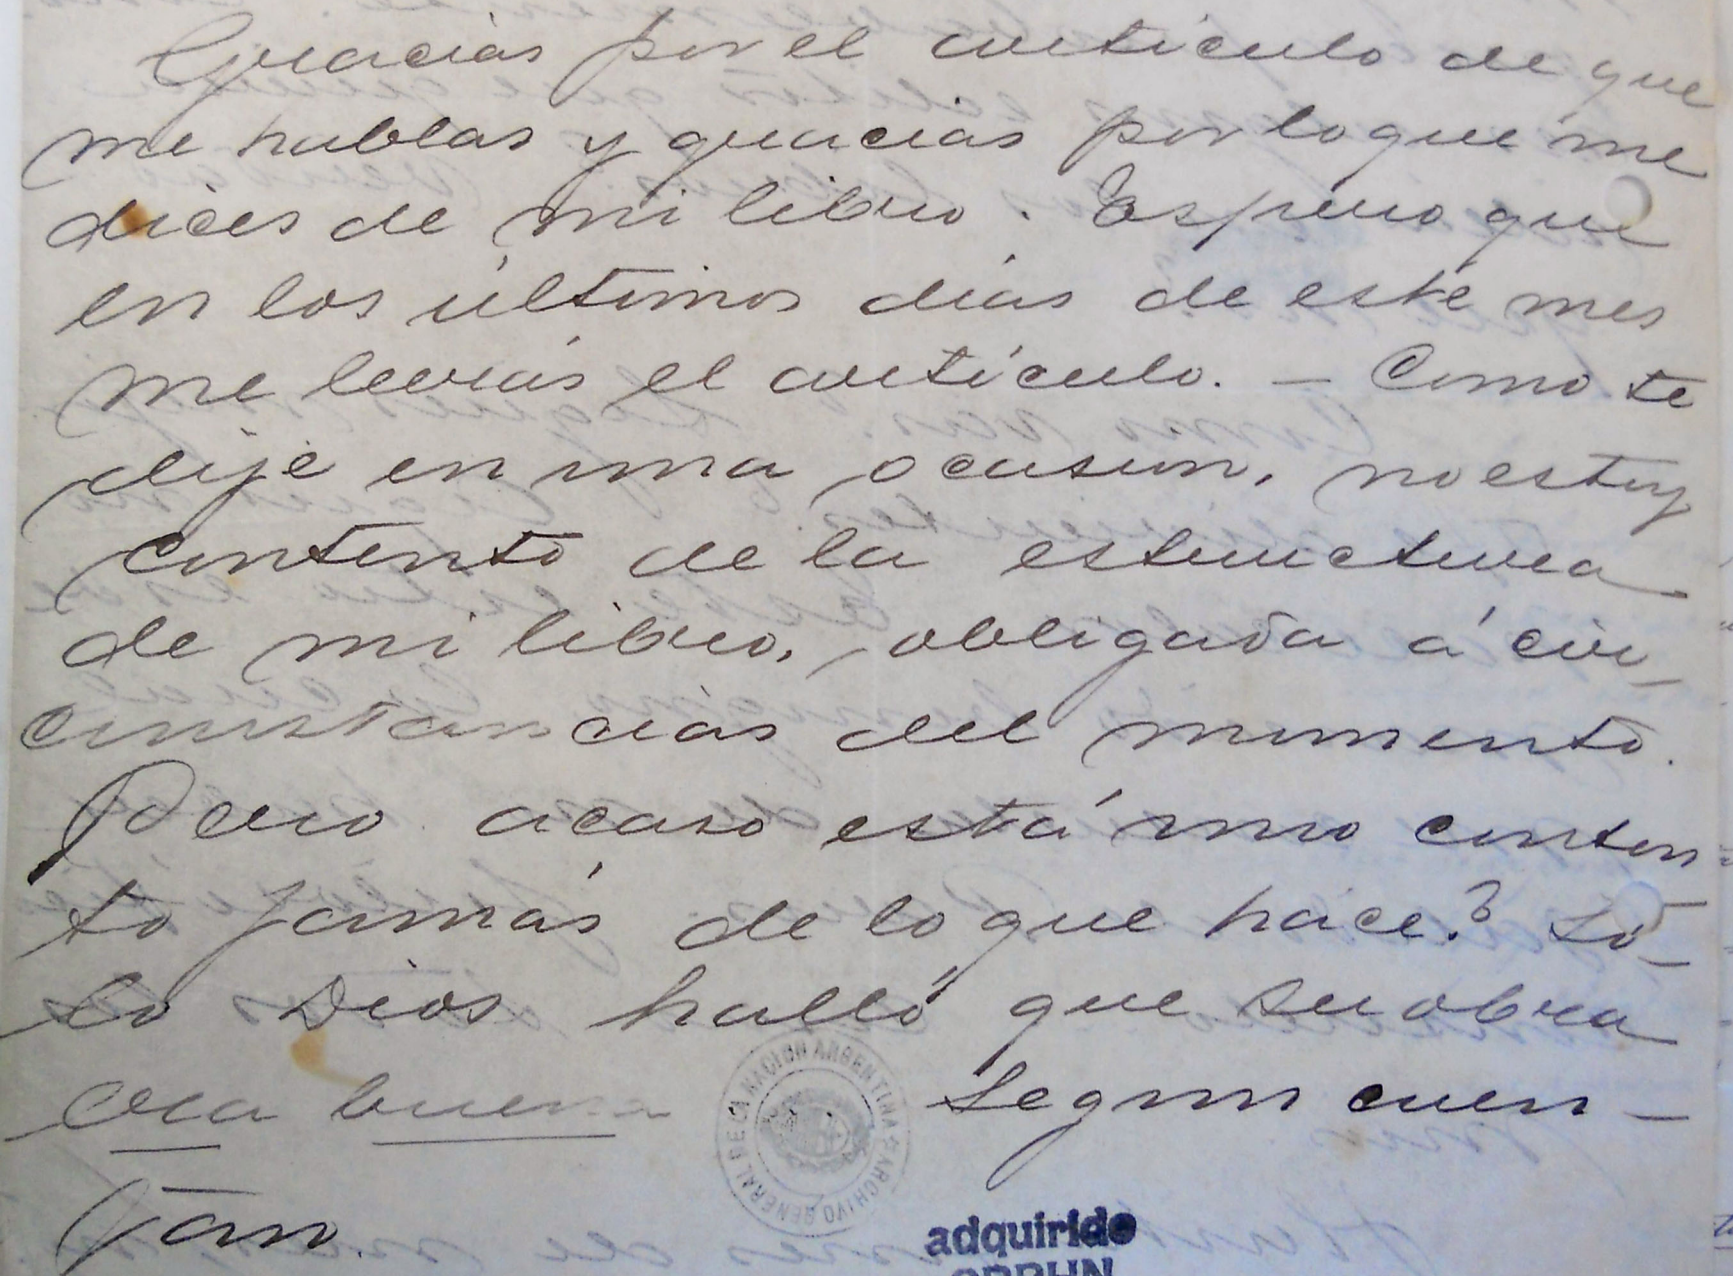 Gracias por el artículo de que
me hablas y gracias por lo que me
dices de mi libro. Espero que
en los últimos días de este mes
me leerás el artículo. — Como te
dije en una ocasión, no estoy
contento de la estructura
de mi libro, obligada á cir-
cunstancias del momento.
Pero acaso está uno conten-
to jamás de lo que hace? Só-
lo Dios halló que su obra
era buena segun cuen-
tan.
ARCHIVO GENERAL DE LA NACION ARGENTINA
adquirido